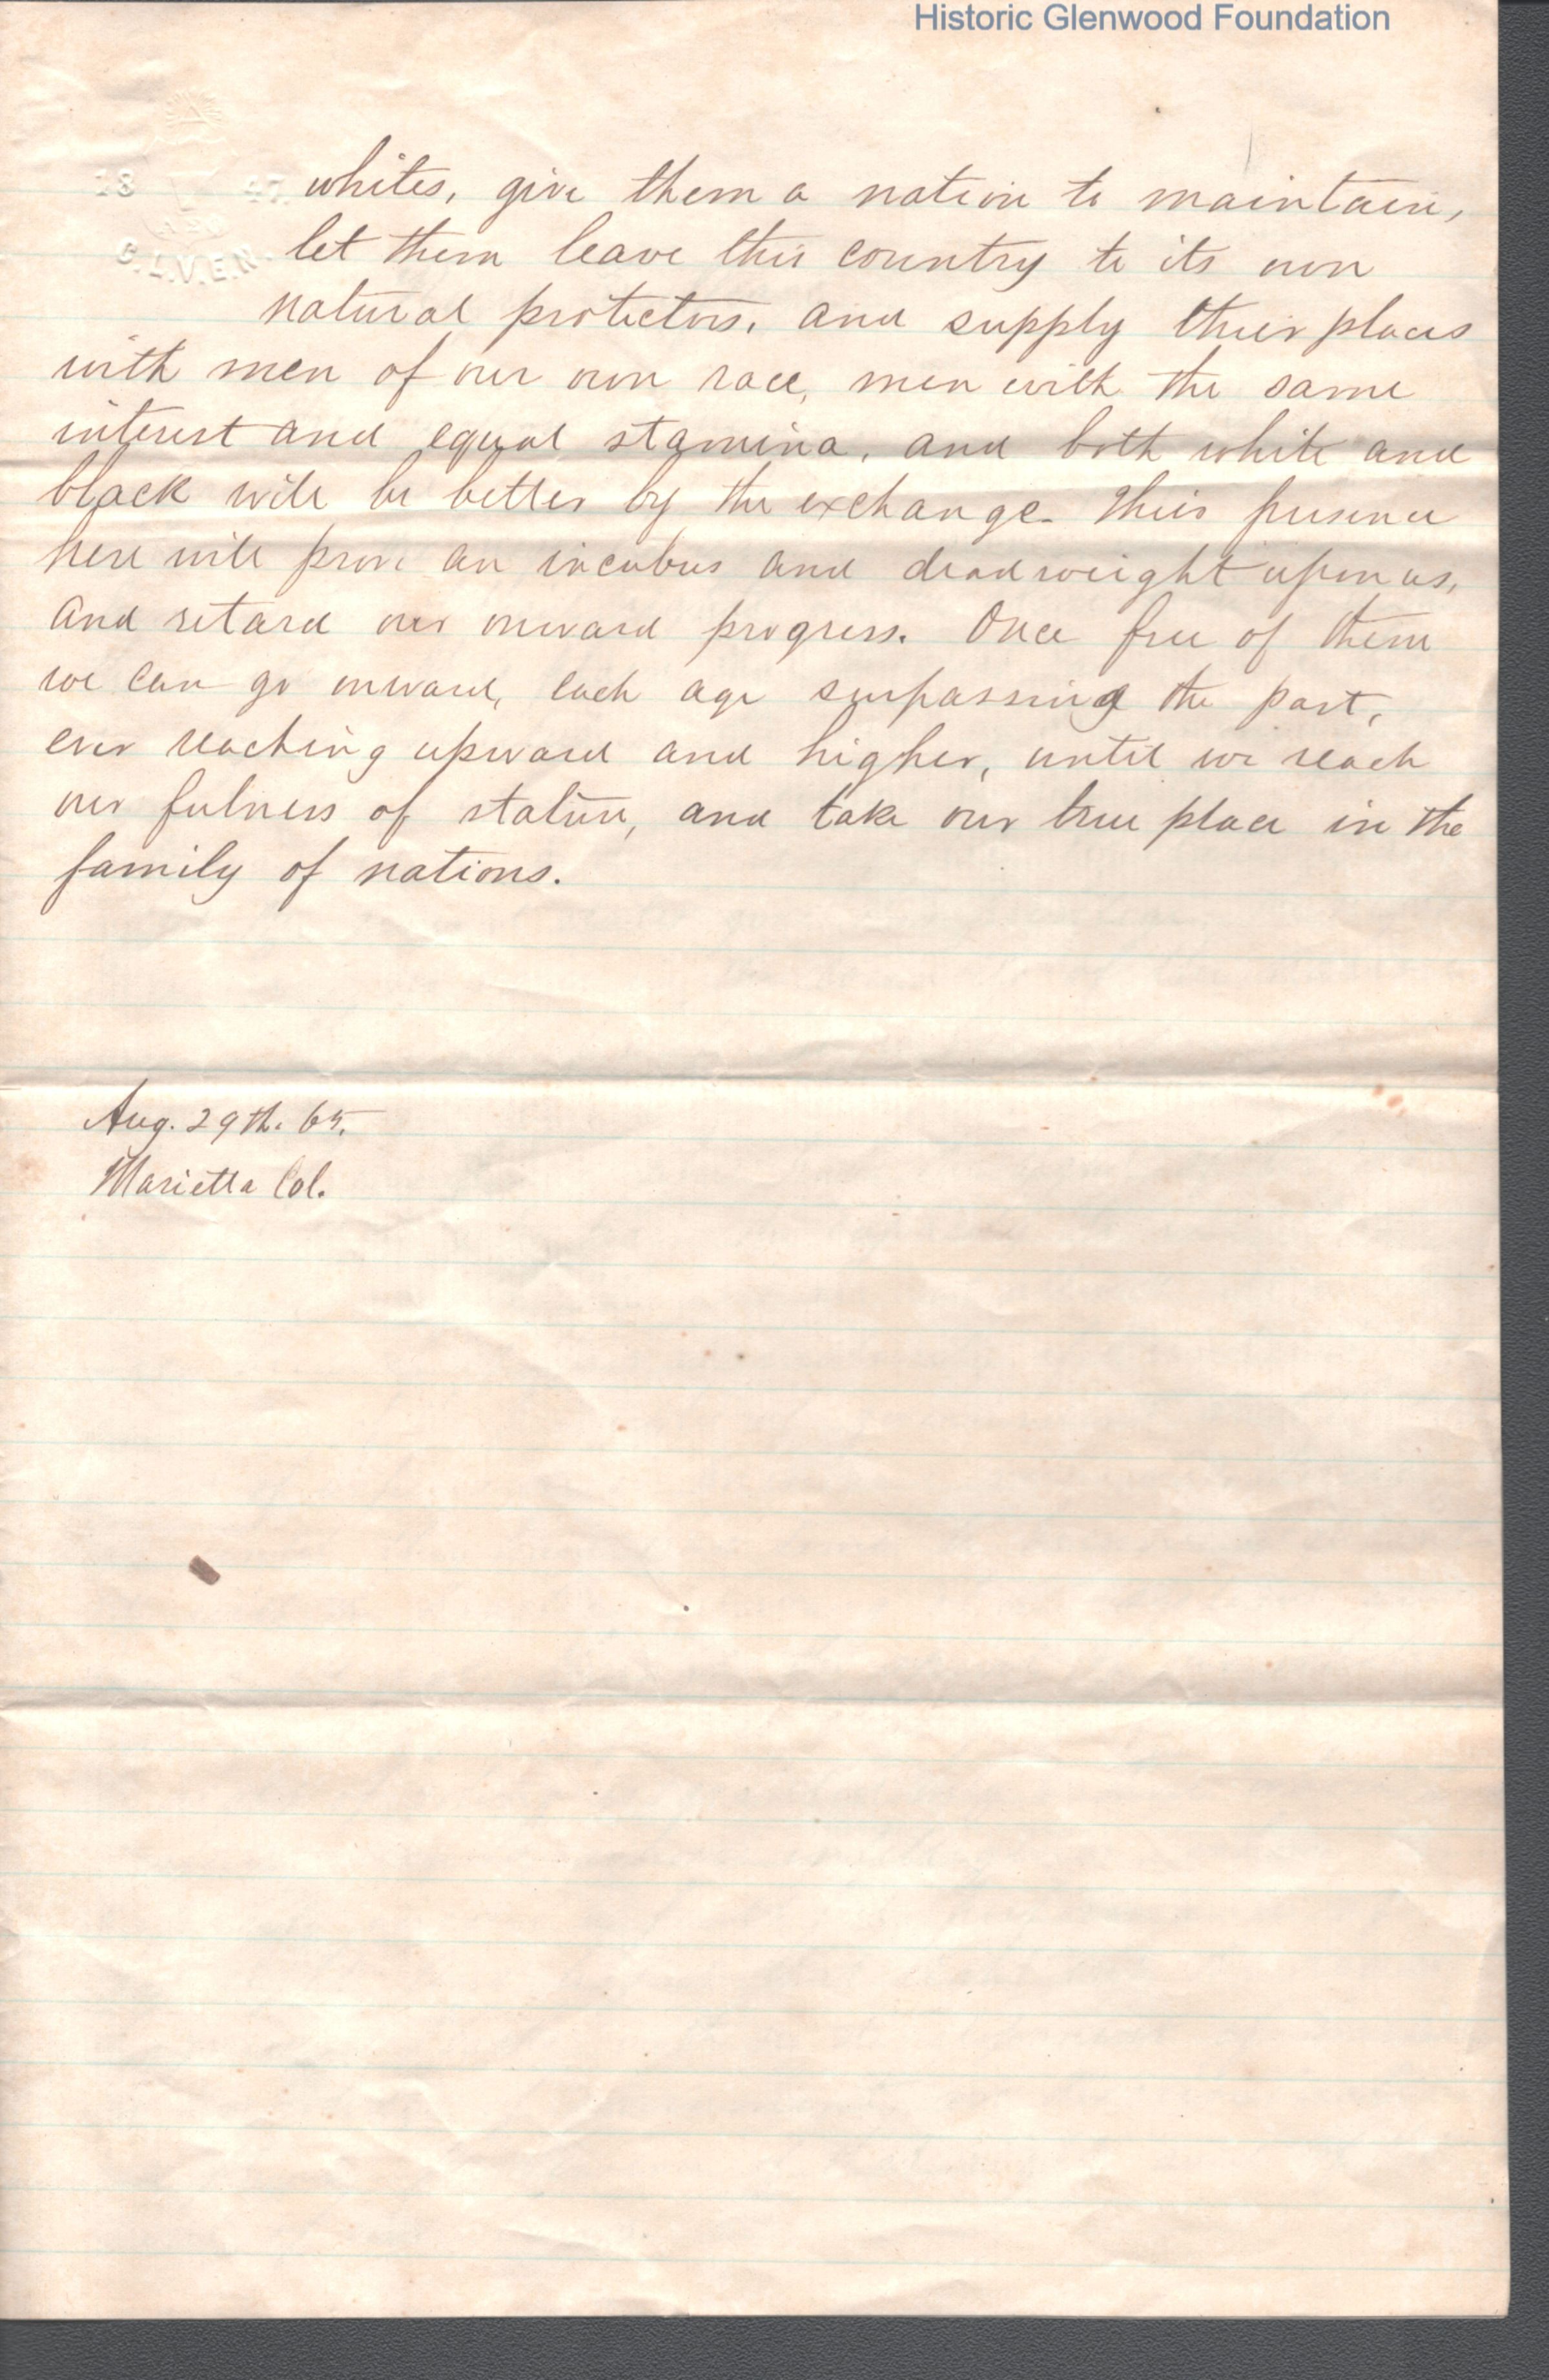 Historic Glenwood Foundation
18 47
G.L.V.E.N.
whites, give them a nation to maintain,
let them leave this country to its own
natural protectors, and supply their places
with men of our own race, men with the same
interest and equal stamina, and both white and
black will be better by the exchange. Their presence
here will prove an incubus and dead weight upon us,
and retard our onward progress. Once free of them
we can go onward, each age surpassing the past,
ever reaching upward and higher, until we reach
our fulness of stature, and take our true place in the
family of nations.
Aug. 29th. 65.
Marietta Col.